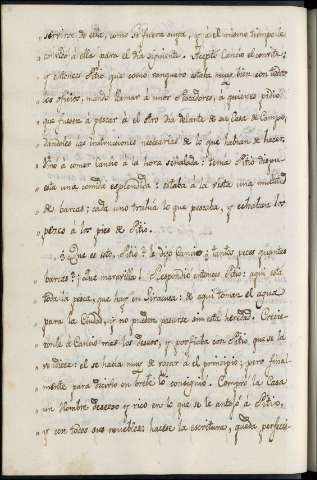 servirse de este, como si fuera suya, y á el mismo tiempo le
convidó á ella para el dia siguiente. Aceptó Canio el convite;
y entonces Pitio que como ranquero estaba muy bien con todos
los oficios, mandó llamar á unos Pescadores, á quienes pidió
que fueran á pescar á el otro dia delante de su Casa de Campo,
dandoles las instrucciones necesarias de lo que habian de hacer.
Vino á comer Canio á la hora señalada: tenia Pitio dispu-
esta una comida esplendida: estaba á la vista una multitud
de barcas; cada uno trahía lo que pescaba, y echaban los
peces á los pies de Pitio.
¿Que es esto, Pitio? le dijo Canio; ¿tantos peces quantas
barcas? ¡Que maravilla! Respondió entonces Pitio: aquí está
toda la pesca, que hay en Siracusa: de aquí toman el agua
para la Ciudad, y no pueden pasarse sin esta heredad. Crecie-
ronle á Canio mas los deseos, y porfiaba con Pitio, que se la
vendiese: él se hacia muy de rogar á el principio; pero final-
mente para decirlo en breve lo consiguió. Compró la Casa
un Hombre deseoso y rico en lo que se le antojó á Pitio,
y con todos sus muebles: hacese la escritura, queda perfecci-